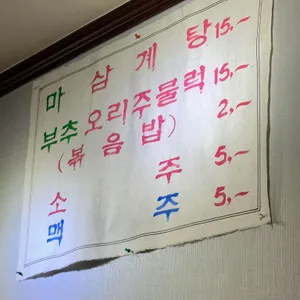 마 삼 계 탕 15,-
부추 오리주물럭 15,-
(볶 음 밥) 2,-
소 주 5,-
맥 주 5,-